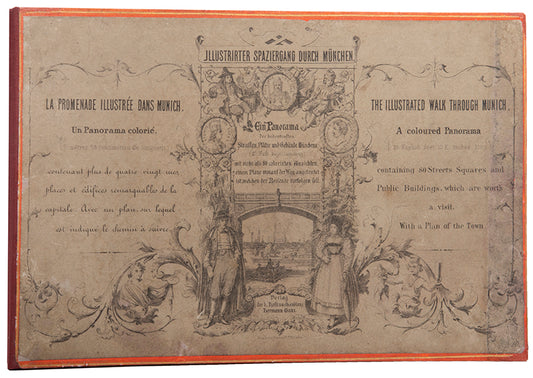 JLLUSTRIRTER SPAZIERGANG DURCH MÜNCHEN.
LA PROMENADE ILLUSTRÉE DANS MUNICH.
Un Panorama colorié.
contenant plus de quatre vingt rues
places et édifices remarquables de la
capitale Avec un plan, sur lequel
est indiqué le chemin à suivre.
Ein Panorama
der bedeutendsten
Straßen, Plätze und Gebäude Münchens
mit mehr als 80 colorirten Ansichten
einem Plane worauf der Weg angedeutet
ist welchen der Reisende verfolgen soll.
Verlag
Hermann Manz
THE ILLUSTRATED WALK THROUGH MUNICH.
A coloured Panorama
containing 80 Streets Squares and
Public Buildings, which are worth
a visit.
With a Plan of the Town